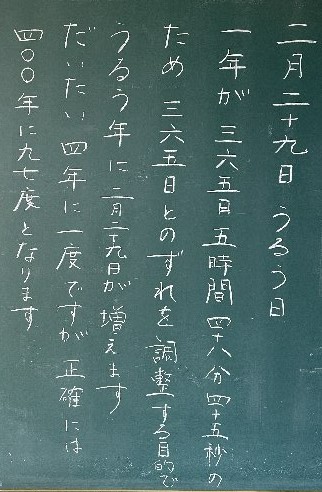 二月二十九日 うるう日
一年が 三六五日 五時間 四十八分 四十五秒の
ため 三六五日とのずれを 調整する目的で
うるう年に 二月二十九日が 増えます
だいたい 四年に一度ですが 正確には
四〇〇年に九七度となります